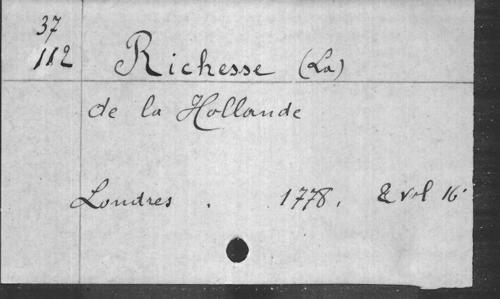 37
112 Richesse (La)
de la Hollande
Londres . 1778. 2 vol 16°